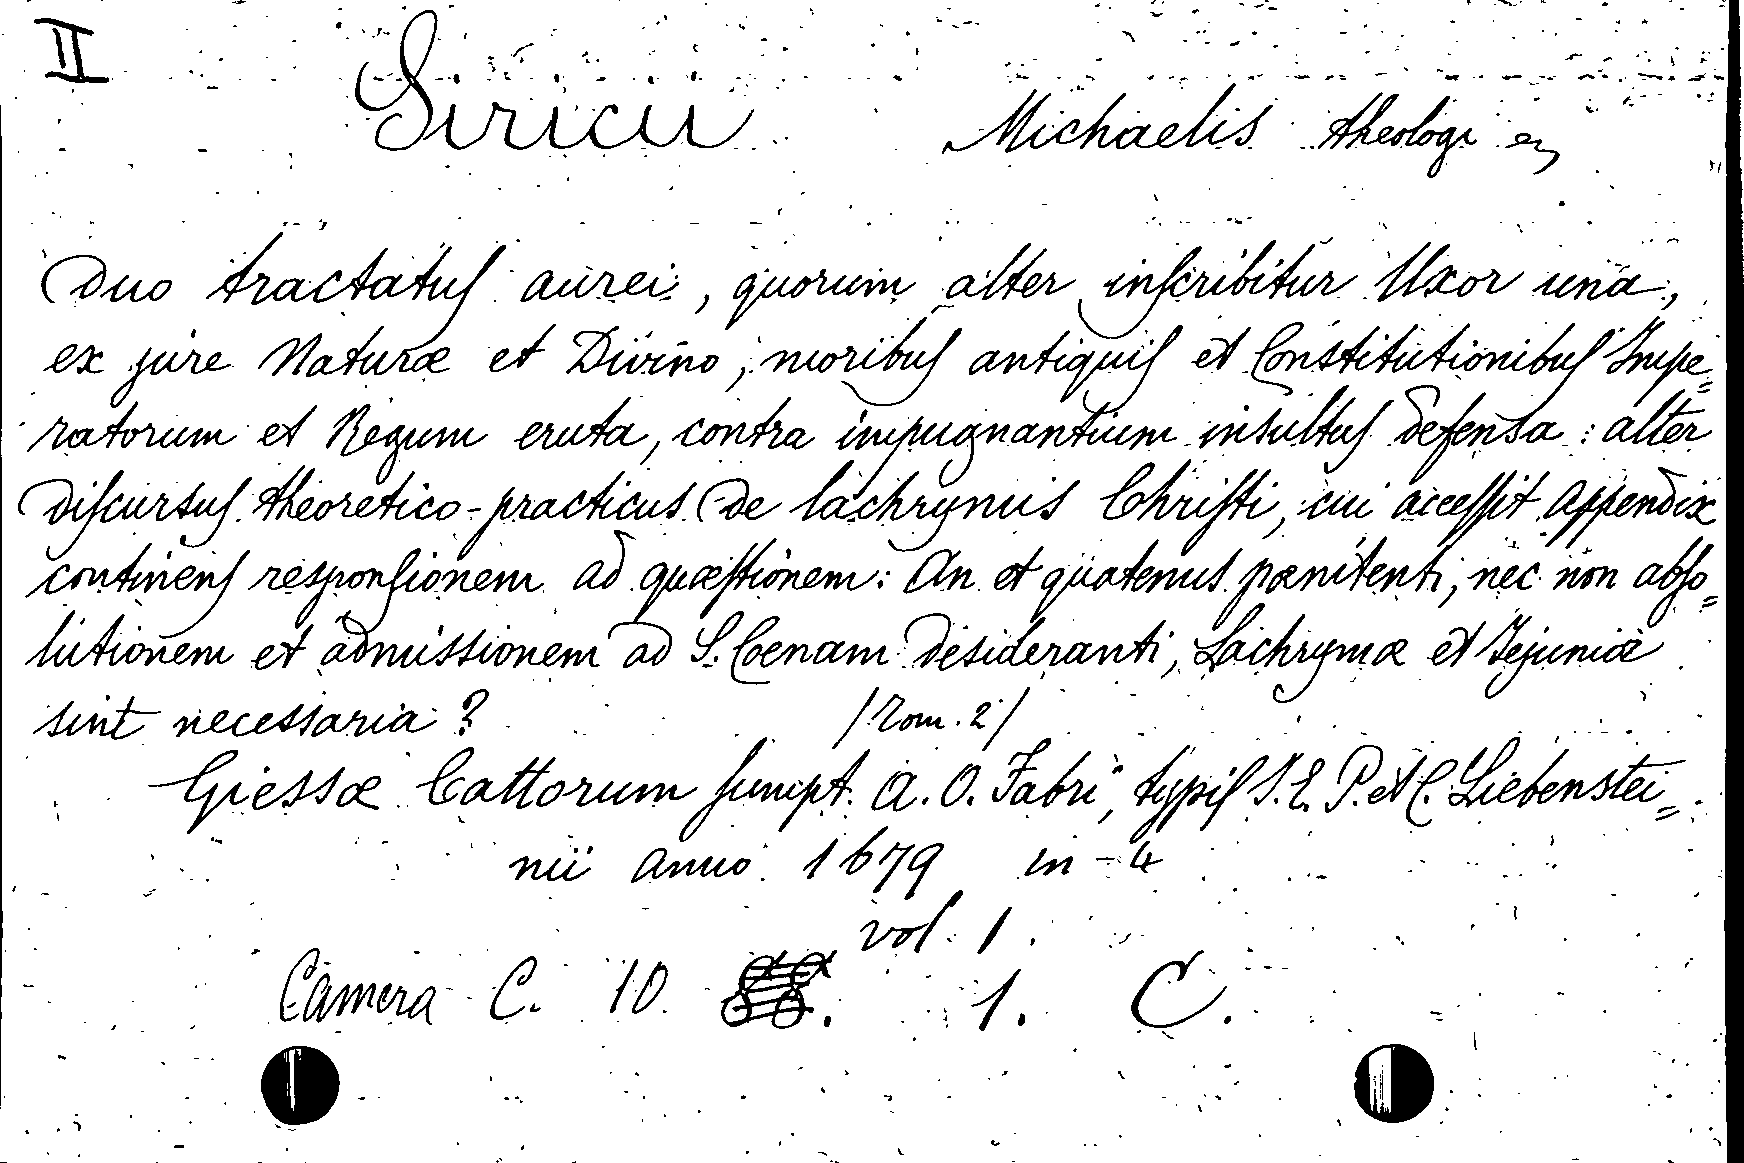 II
Siricii Michaelis theologi
Duo tractatuſ aurei, quorum alter inſcribitur Uxor una,
ex jure Naturæ et Divino, moribuſ antiquiſ et Constitutionibuſ Impe=
ratorum et Regum eruta, contra impugnantium insultuſ defensa: alter
diſcursuſ theoretico-practicus de lachrymis Chriſti, cui acceſſit appendix
continenſ responſionem ad quæſtionem: An et quatenus pœnitenti, nec non abſo=
lutionem et admissionem ad S. Cœnam desideranti, Lachrymæ et Jejuniæ
sint necessaria? /Tom. 2/
Giessæ Cattorum ſumpt. A. O. Fabri, typiſ J. E. P. et C. Liebenstei=
nii anno 1679 in-4
vol. 1.
Camera C. 10. 1. C.